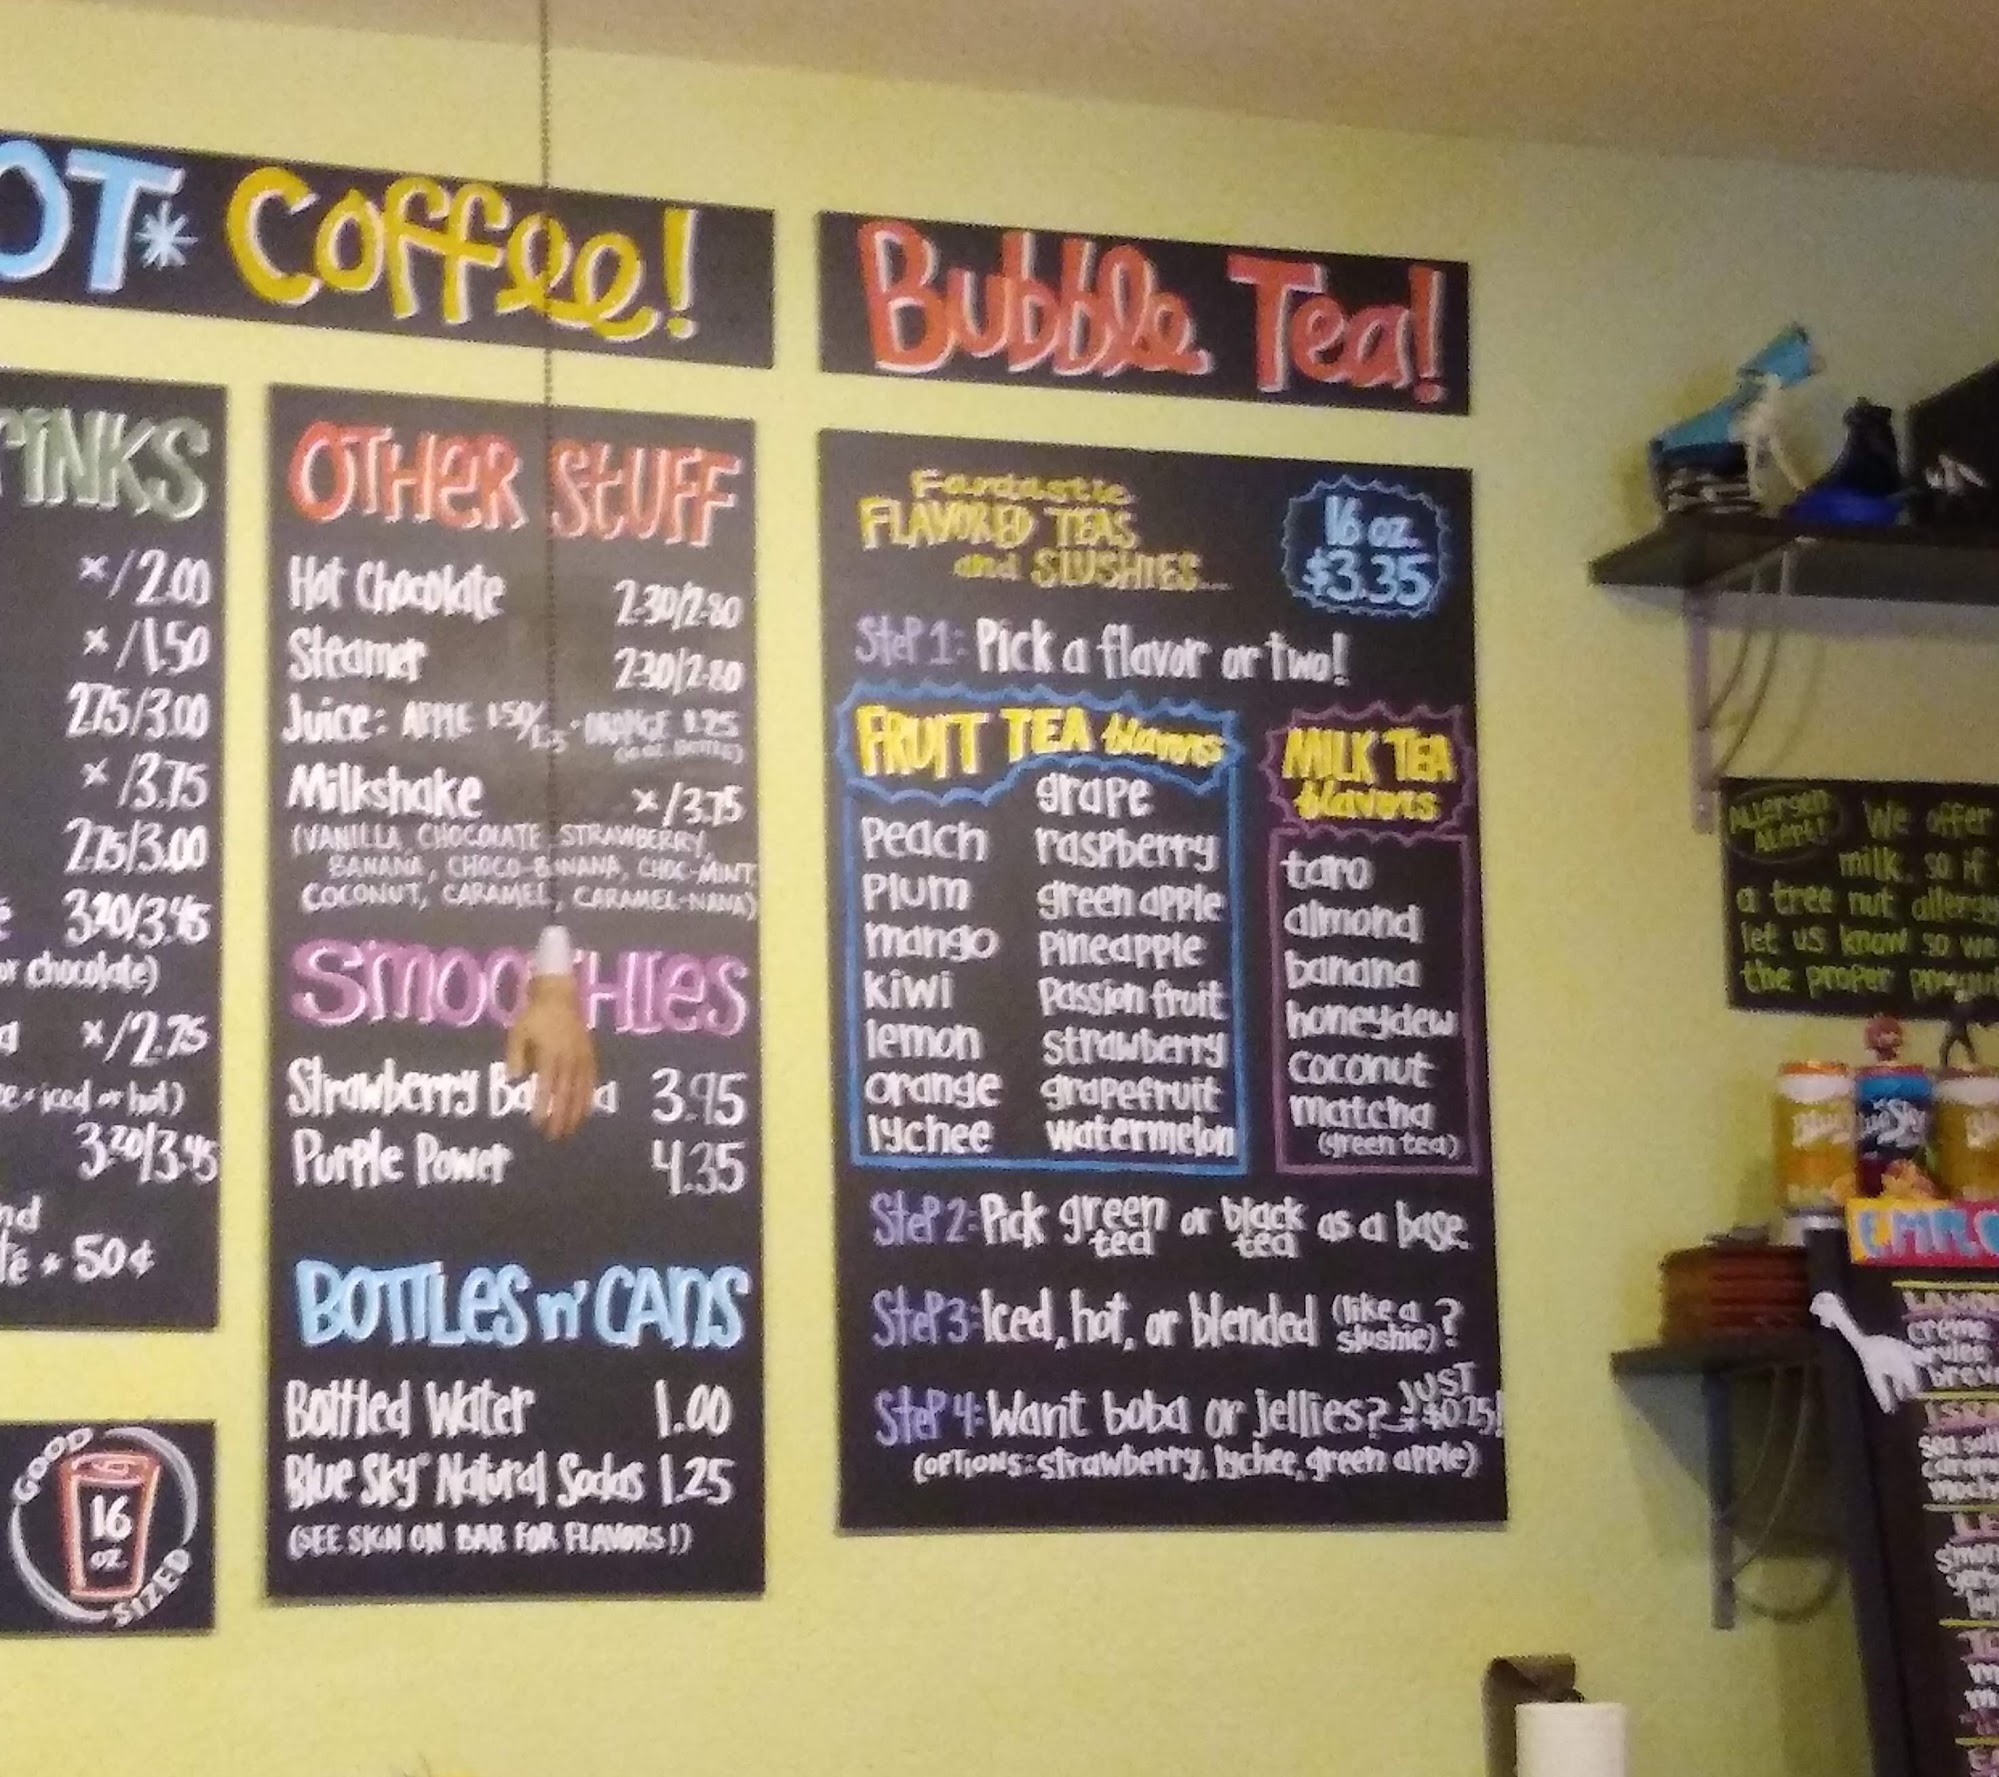 OT* Coffee!
Bubble Tea!
x/2.00
x/1.50
2.75/3.00
x/3.75
2.75/3.00
3.20/3.45
or chocolate)
x/2.75
iced or hot)
3.20/3.45
50¢
GOOD
16
oz
SIZED
OTHER STUFF
Hot Chocolate 2.30/2.80
Steamer 2.30/2.80
Juice: APPLE ORANGE 1.25
Milkshake x/3.75
(VANILLA, CHOCOLATE, STRAWBERRY,
BANANA, CHOCO-BANANA, CHOC-MINT
COCONUT, CARAMEL, CARAMEL-NANA)
SMOOTHIES
Strawberry Banana 3.95
Purple Power 4.35
BOTTLES n' CANS
Bottled Water 1.00
Blue Sky Natural Sodas 1.25
(SEE SIGN ON BAR FOR FLAVORS!)
Fantastic
FLAVORED TEAS
and SLUSHIES...
16 oz
$3.35
Step 1: Pick a flavor or two!
FRUIT TEA flavors
peach
plum
mango
kiwi
lemon
orange
lychee
grape
raspberry
green apple
pineapple
passion fruit
strawberry
grapefruit
watermelon
MILK TEA
flavors
taro
almond
banana
honeydew
coconut
matcha
(green tea)
Step 2: Pick green tea or black tea as a base.
Step 3: Iced, hot, or blended (like a slushie)?
Step 4: Want boba or jellies? JUST
(OPTIONS: strawberry, lychee, green apple)
ALLERGEN
ALERT!
We offer
milk. so if
a tree nut allergy
let us know so we
the proper